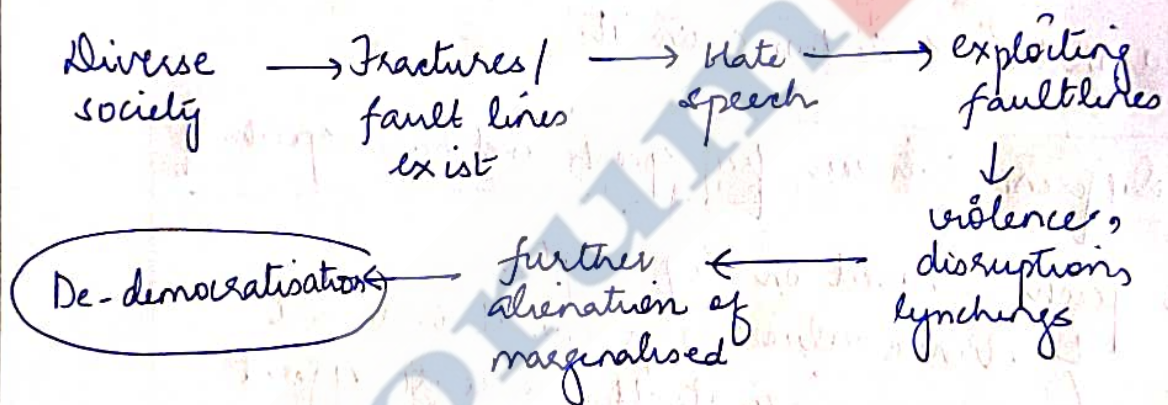 Diverse society
Fractures/ fault lines exist
Hate speech
exploiting faultlines
violence, disruptions, lynchings
further alienation of marginalised
De-democratisation